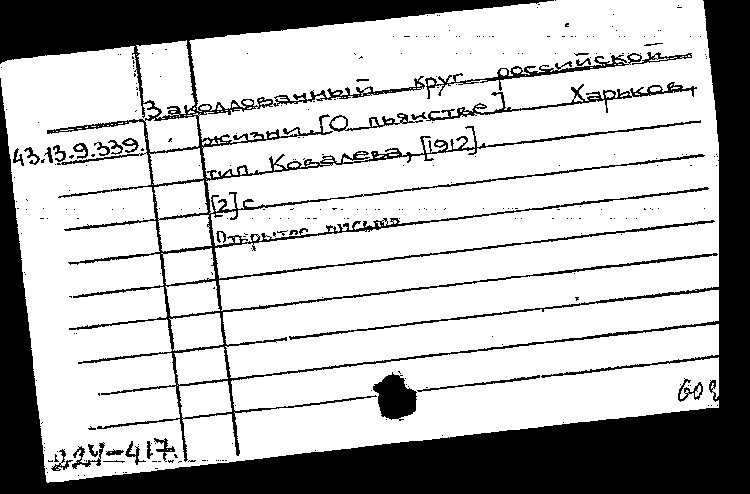 Заколдованный круг российской
43.13.9.339. жизни. [О пьянстве]. Харьков,
тип. Ковалева, [1912].
[2] с.
Открытое письмо
224-417.